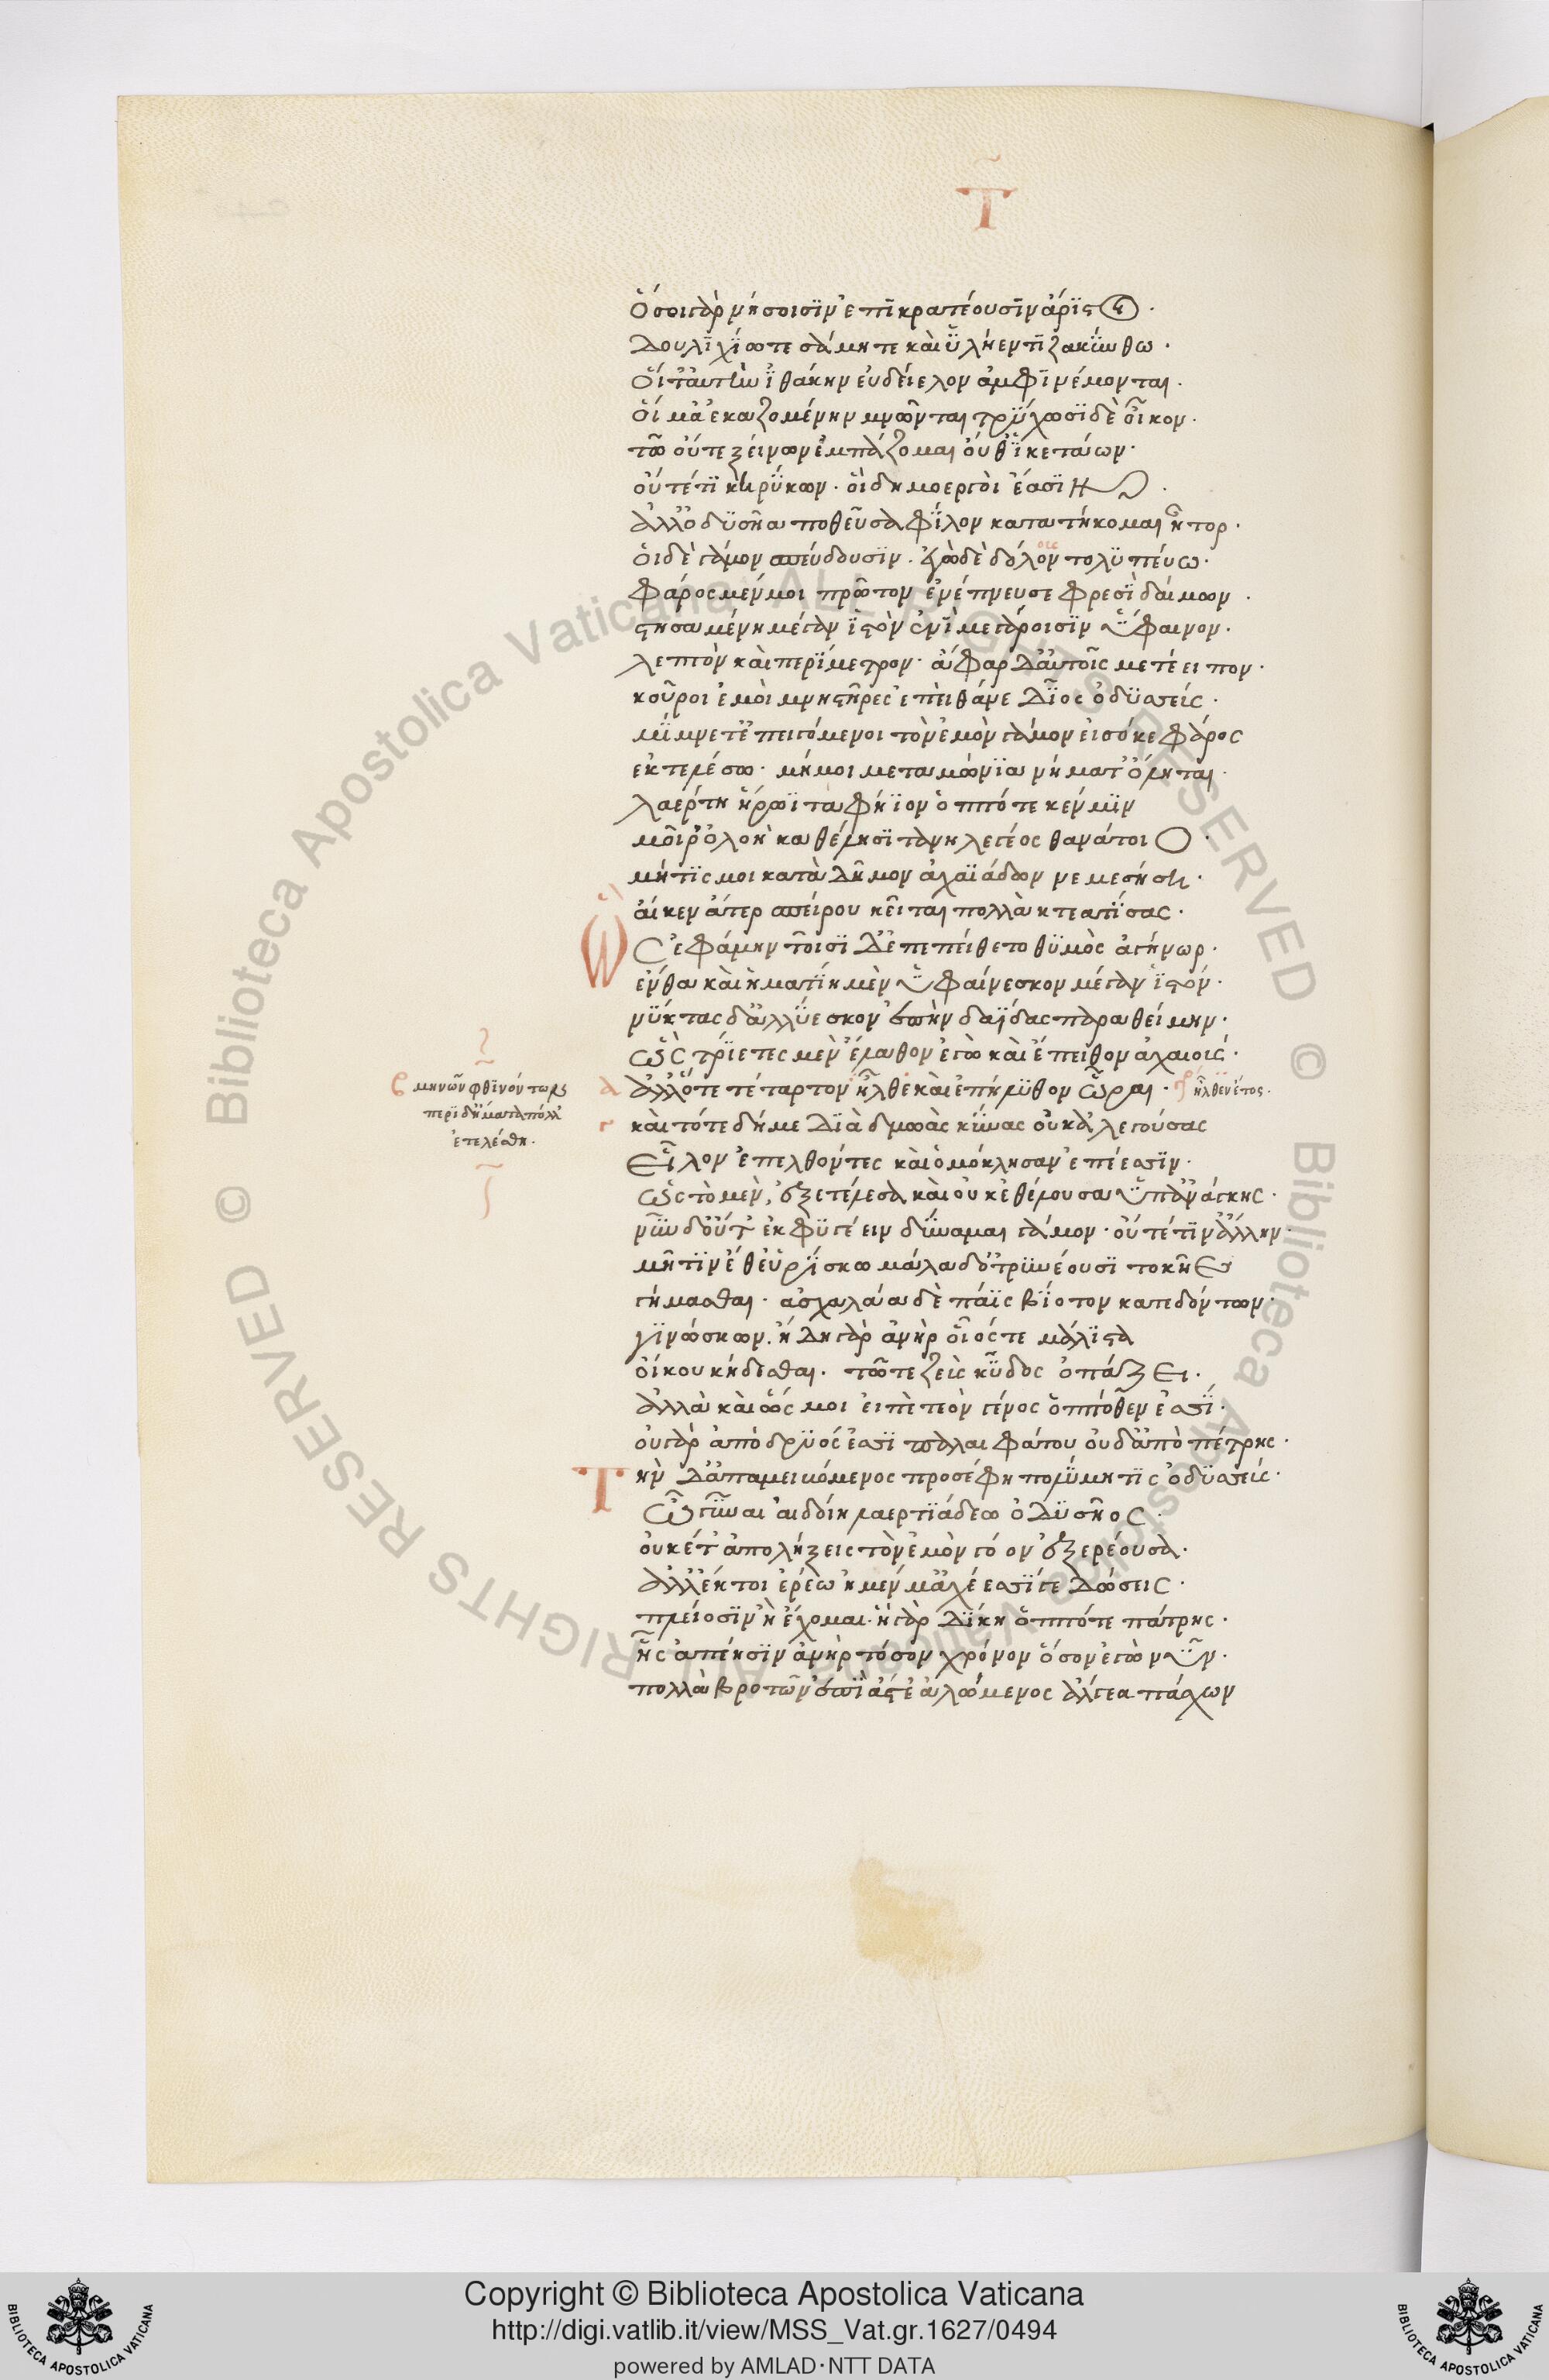 Τ
Ὅσοι γὰρ νήσοισϊν ἐπϊκρατέουσϊν ἄρϊστοι·
Δουλϊχΐω τε σάμη τε καὶ ὑλήεντϊ ζακύνθω·
Οἵ τ' αὐτὴν ϊθάκην ἐυδείελον ἀμφϊνέμονται·
Οἵ μ' ἀεκαζομένην μνῶνται τρύχωσϊ δὲ οἶκον·
τῶ οὔτε ξείνων ἐμπάζομαι οὔθ' ἱκετάων·
οὔτέ τϊ κηρύκων· οἳ δημοεργοὶ ἔασϊν·
ἀλλ' ὀδϋσῆα ποθεῦσα φίλον κατατήκομαι ἦτορ·
ὁι δὲ γάμον σπεύδουσϊν· ἐγὼ δὲ δόλον τολϋπεύω·
οις
φᾶρος μέν μοι πρῶτον ἐνέπνευσε φρεσῒ δαίμων·
στησαμένη μέγαν ἱστὸν ἐνῒ μεγάροισϊν ὕφαινον·
λεπτὸν καὶ περΐμετρον· ἄφαρ δ' αὐτοῖς μετέειπον·
κοῦροι ἐμοὶ μνηστῆρες ἐπεὶ θάνε δῖος ὀδϋσσεύς·
μΐμνετ' ἐπειγόμενοι τὸν ἐμὸν γάμον εἰσόκε φᾶρος
ἐκτελέσω· μή μοι μεταμώνϊα νήματ' ὄληται·
λαέρτη ἥρωϊ ταφήϊον ὁππότε κέν μιν
μοῖρ' ὀλοὴ καθέλησϊ τανηλεγέος θανάτοιο·
μήτϊς μοι κατὰ δῆμον ἀχαϊάδων νεμεσήση·
αἴ κεν ἄτερ σπείρου κεῖται πολλὰ κτεατΐσας·
Ὣς ἐφάμην τοῖσϊ δ' ἐπεπείθετο θϋμὸς ἀγήνωρ·
ἔνθα καὶ ἠματΐη μὲν ὑφαίνεσκον μέγαν ἱστόν·
νύκτας δ' ἀλλύεσκον ἐπὴν δαΐδας παραθείμην·
ὣς τρΐετες μὲν ἔλαθον ἐγὼ καὶ ἔπειθον ἀχαιούς·
α ἀλλ' ὅτε τέταρτον ἦλθε καὶ ἐπήλϋθον ὧραι· γρ ἦλθεν ἔτος·
β μηνῶν φθϊνόντων
περϊ δ' ἤματα πόλλ'
ἐτελέσθη·
γ καὶ τότε δή με δϊὰ δμωὰς κύνας οὐκ ἀλεγούσας
Εἷλον ἐπελθόντες καὶ ὁμόκλησαν ἐπέεσσϊν·
ὣς τὸ μὲν ἐξετέλεσσα καὶ οὐκ ἐθέλουσα ὑπ' ἀνάγκης·
νῦν δ' οὔτ' ἐκφϋγέειν δύναμαι γάμον· οὔτέ τϊν' ἄλλην
μῆτϊν ἔθ' εὑρΐσκω μάλα δ' ὀτρϋνέουσϊ τοκῆες
γήμασθαι· ἀσχαλάα δὲ πάϊς βίοτον κατεδόντων·
γϊνώσκων· ἤδη γὰρ ἀνὴρ οἷός τε μάλϊστα
οἴκου κήδεσθαι· τῶ τε ζεὺς κῦδος ὀπάζει·
ἀλλὰ καὶ ὥς μοι εἰπὲ τεὸν γένος ὁππόθεν ἐσσΐ·
οὐ γὰρ ἀπὸ δρϋός ἐσσϊ παλαιφάτου οὐδ' ἀπὸ πέτρης·
Τὴν δ' ἀπαμειβόμενος προσέφη πολύμητϊς ὀδϋσσεύς·
Ὦ γύναι αἰδοίη λαερτϊάδεω ὀδϋσῆος·
οὐκέτ' ἀπολήξεις τὸν ἐμὸν γόον ἐξερέουσα·
ἀλλ' ἔκ τοι ἐρέω ἦ μέν μ' ἀχέεσσΐ γε δώσεις·
πλείοσϊν ἢ ἔχομαι· ἡ γὰρ δΐκη ὁππότε πάτρης·
ἧς ἀπέησϊν ἀνὴρ τόσον χρόνον ὅσον ἐγὼ νῦν·
πολλὰ βροτῶν ἐπῒ ἄστε' ἀλώμενος ἄλγεα πάσχων
Copyright © Biblioteca Apostolica Vaticana
http://digi.vatlib.it/view/MSS_Vat.gr.1627/0494
powered by AMLAD·NTT DATA
BIBLIOTECA APOSTOLICA VATICANA
BIBLIOTECA APOSTOLICA VATICANA
© Biblioteca Apostolica Vaticana ALL RIGHTS RESERVED
© Biblioteca Apostolica Vaticana ALL RIGHTS RESERVED